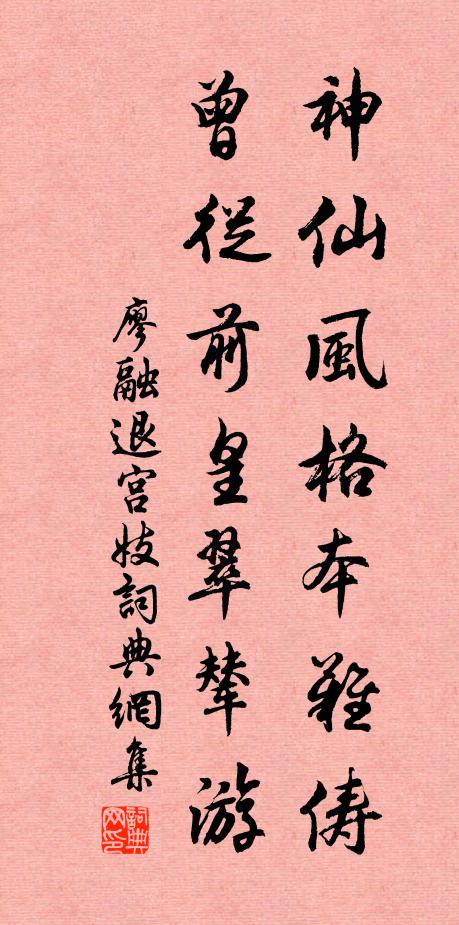 神仙風格本難儔
曾從前皇翠輦游
廖融退宮妓詞典網集
詞典網印